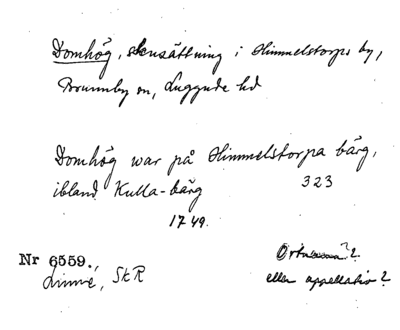 Domhög, stensättning i Himmelstorps by,
Brunnby sn, Luggude hd
Domhög war på Himmelstorpa bärg,
ibland Kulla-bärg 323
1749.
Nr 6559.,
Linné, Sk R
Ortnamn?
eller appellativ?